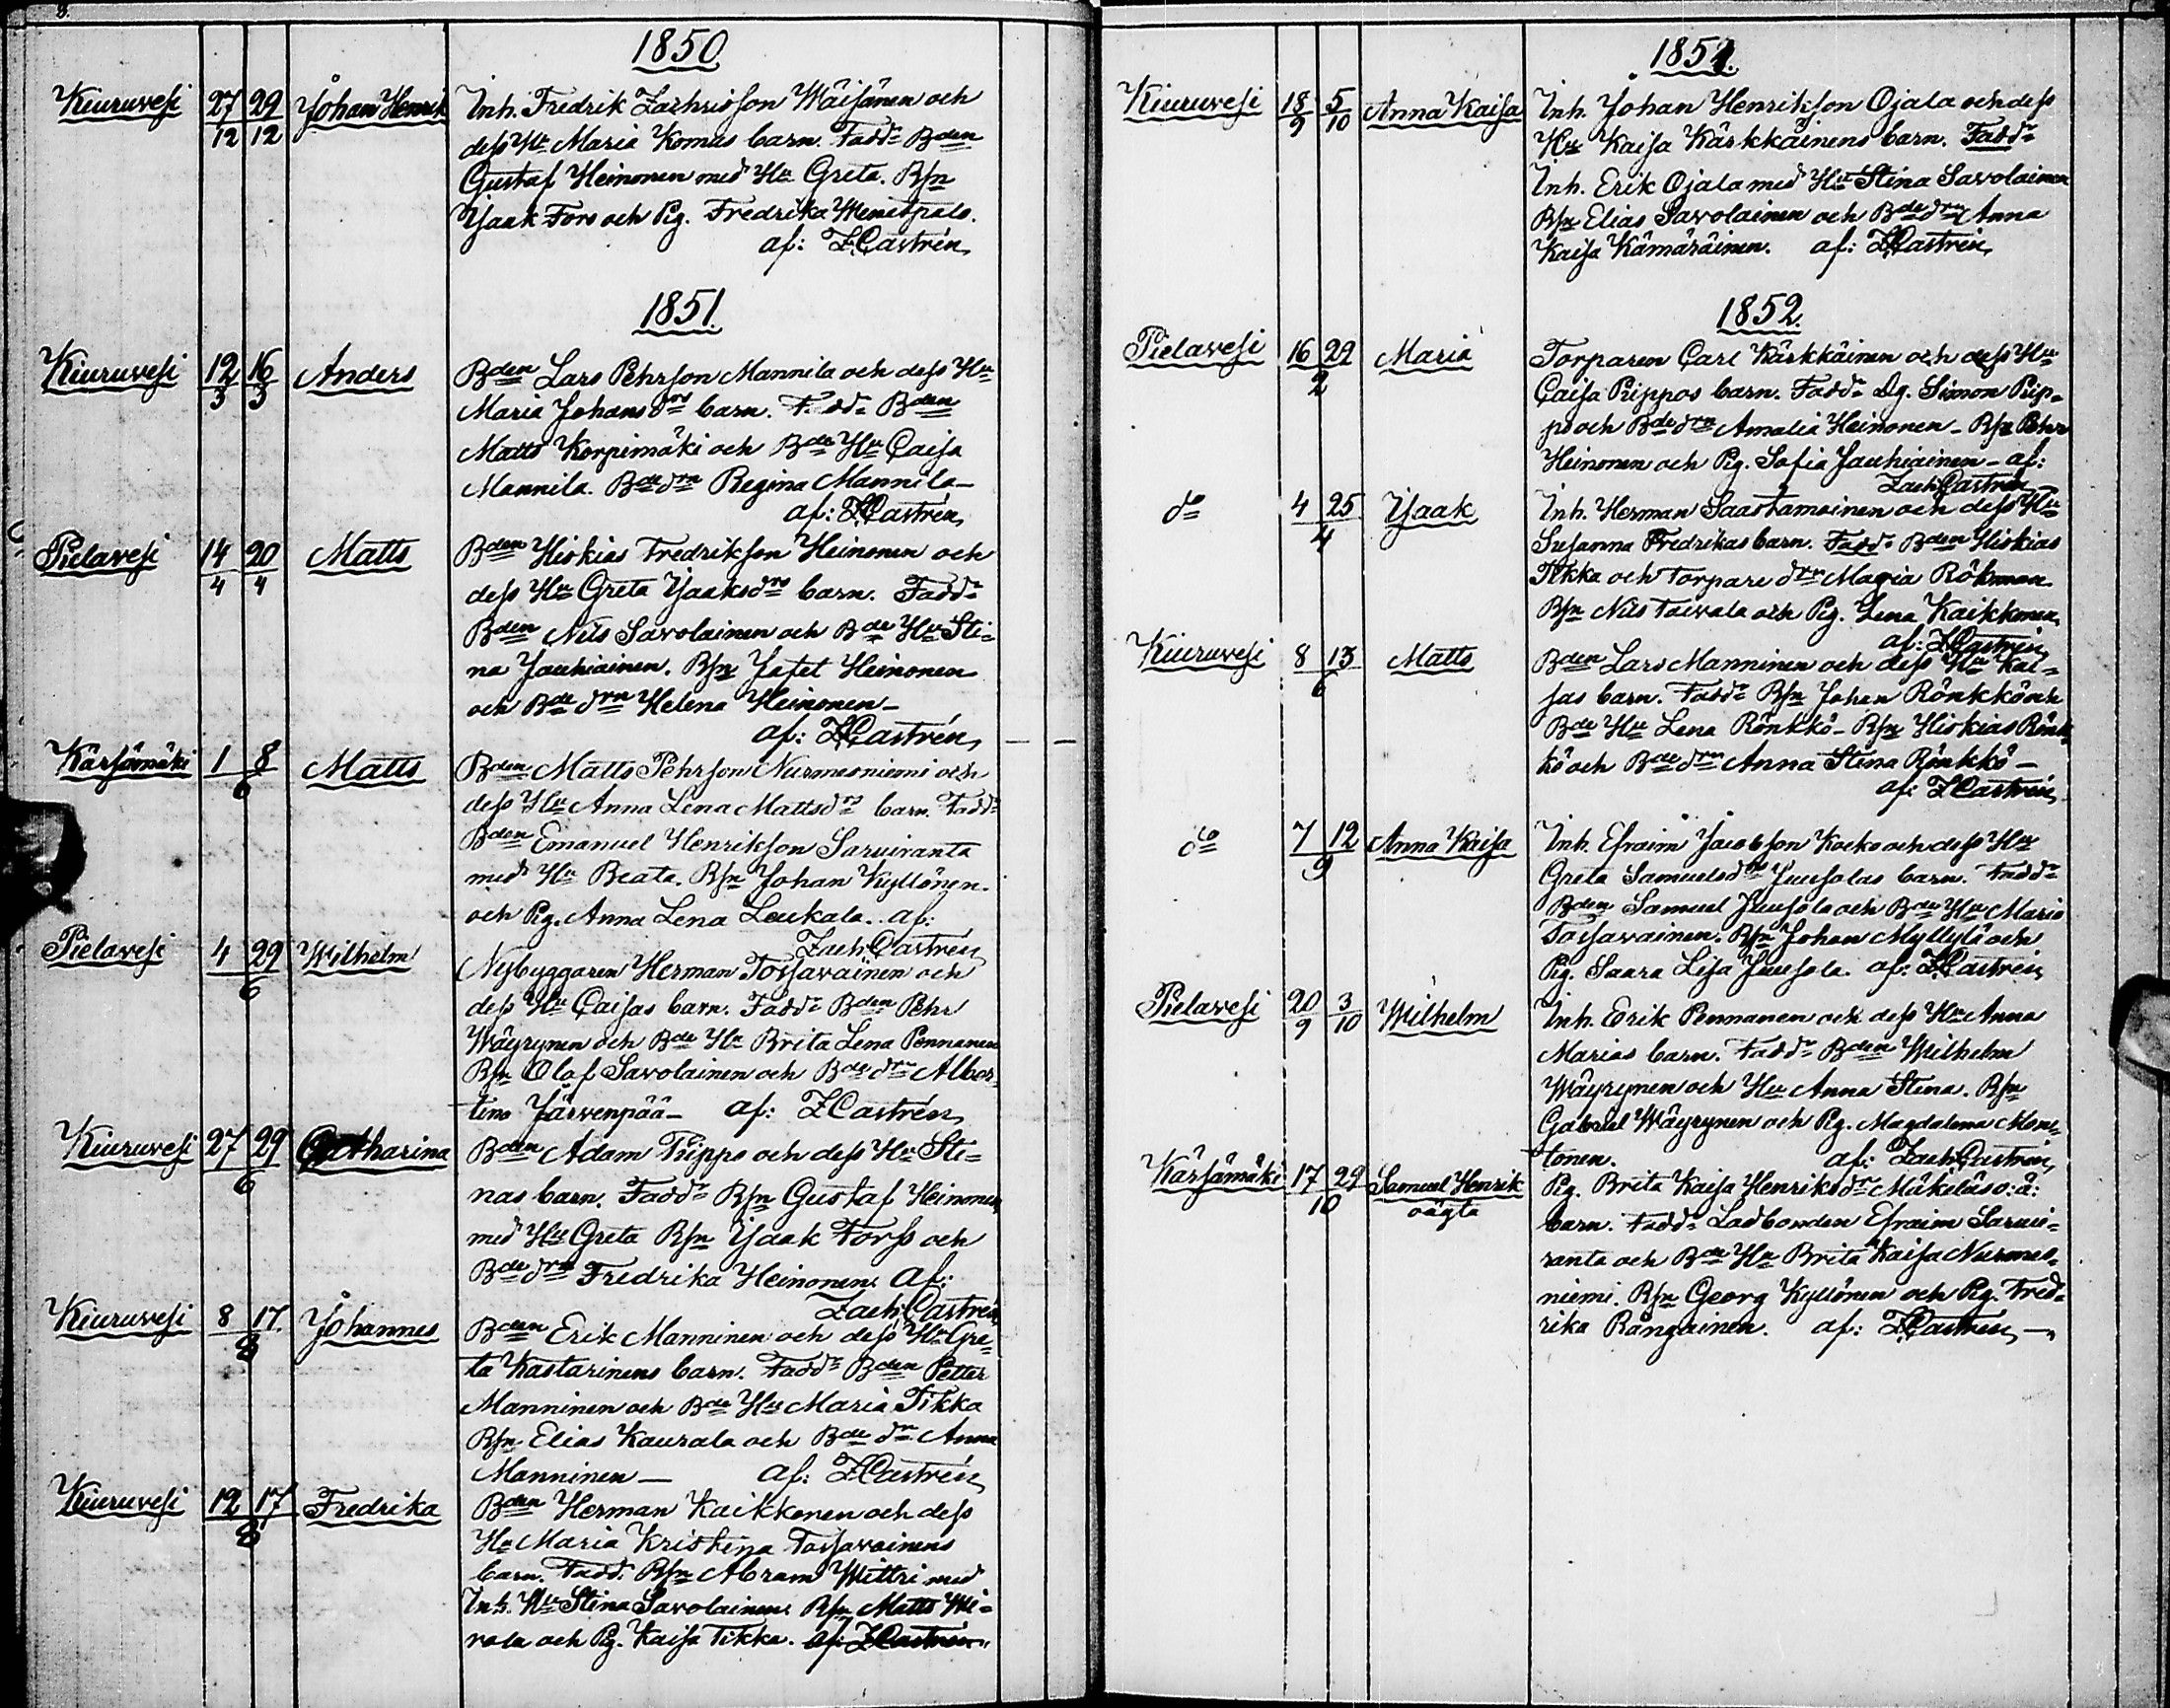 8.
1850
Kiuruvesi 27/12 29/12 Johan Henrik Inh. Fredrik Zachrisson Wäisänen och
dess Hu Maria Komus barn. Fadd: Bden
Gustaf Heinonen med Hu Greta. Rfn
Isaak Fors och Pig. Fredrika Wenetpalo.
af: Z.Castrén
1851.
Kiuruvesi 12/3 16/3 Anders Bden Lars Pehrson Mannila och dess Hu
Maria Johansdrs barn. Fadd: Bden
Matts Korpimäki och Bde Hu Caisa
Mannila. Bdedrn Regina Mannila—
af: Z.Castrén
Pielavesi 14/4 20/4 Matts Bden Hiskias Fredrikson Heinonen och
dess Hu Greta Isaksdrs barn. Fadd:
Bden Nils Savolainen och Bde Hu Sti=
na Jauhiainen. Rfn Jafet Heinonen
och Bde drn Helena Heinonen—
af: Z.Castrén
Kärsämäki 1 8/6 Matts Bden Matts Pehrson Nurmesniemi och
dess Hu Anna Lena Mattsdrs barn. Fadd:
Bden Emanuel Henrikson Saruiranta
med Hu Beata. Rfn Johan Kyllönen.
och Pig. Anna Lena Leukala. af:
Zach.Castrén
Pielavesi 4 29/6 Wilhelm Nybyggaren Herman Tossavainen och
dess Hu Caisas barn. Fadd: Bden Pehr
Wäyrynen och Bde Hu Brita Lena Pennanen
Rfn Olof Savolainen och Bde drn Alber=
tina Järvenpää— af: Z.Castrén
Kiuruvesi 27 29/6 Catharina Bden Adam Prippo och dess Hu Sti=
nas barn. Fadd: Rfn Gustaf Heinonen
med Hu Greta Rfn Isaak Forss och
Bde drn Fredrika Heinonen. af:
Zach.Castrén
Kiuruvesi 8 17/8 Johannes Bden Erik Manninen och dess Hu Gre=
ta Kastarinens barn. Fadd: Bden Petter
Manninen och Bde Hu Maria Tikka
Rfn Elias Kaurala och Bde drn Anna
Manninen— af: Z.Castrén
Kiuruvesi 12 17/8 Fredrika Bden Herman Kaikkonen och dess
Hu Maria Kristina Tossavainens
barn. Fadd: Rfn Abram Wittri med
Inh. Hu Stina Savolainen. Rfn Matts Wi=
rala och Pig. Kaisa Tikka. af: Z.Castrén
1851.
Kiuruvesi 18/9 5/10 Anna Kaisa Inh. Johan Henrikson Ojala och dess
Hu Kaisa Kärkkäinens barn. Fadd:
Inh. Erik Ojala med Hu Stina Savolainen
Rfn Elias Savolainen och Bde drn Anna
Kaisa Kämäräinen. af: Z.Castrén
1852.
Pielavesi 16 22/2 Maria Torparen Carl Kärkkäinen och dess Hu
Caisa Prippos barn. Fadd: Dg. Simon Prip=
po och Bde drn Amalia Heinonen— Rfn Pehr
Heinonen och Pig. Sofia Jauhiainen— af:
Zach.Castrén
do 4 25/4 Isaak Inh. Herman Saastamoinen och dess Hu
Susanna Fredrikas barn. Fadd: Bden Hiskias
Tikka och Torpare drn Maria Röhman
Rfn Nils Taivala och Pig. Lena Kaikkonen
af: Z.Castrén
Kiuruvesi 8 13/6 Matts Bden Lars Manninen och dess Hu Kai=
sas barn. Fadd: Rfn Johan Rönkkö och
Bde Hu Lena Rönkkö— Rfn Hiskias Rönk
kö och Bde drn Anna Stina Rönkkö—
af: Z.Castrén
do 7 12/9 Anna Kaisa Inh. Efraim Jacobson Kocko och dess Hu
Greta Samuelsdr Juusolas barn. Fadd:
Bden Samuel Juusola och Bde Hu Maria
Tossavainen. Rfn Johan Myllylä och
Pig. Saara Lisa Juusola. af: Z.Castrén
Pielavesi 20/9 3/10 Wilhelm Inh. Erik Pennanen och dess Hu Anna
Marias barn. Fadd: Bden Wilhelm
Wäyrynen och Hu Anna Stina. Rfn
Gabriel Wäyrynen och Pig. Magdalena Mons=
tonen. af: Zach.Castrén
Kärsämäki 17 29/10 Samuel Henrik Pig. Brita Kaisa Henriksdr Mäkeläs o:ä:
oägta barn. Fadd: Ladbonden Efraim Sarui=
ranta och Bde Hu Brita Kaisa Nurmes=
niemi. Rfn Georg Kyllönen och Pig. Fred=
rika Rångainen. af: Z.Castrén—